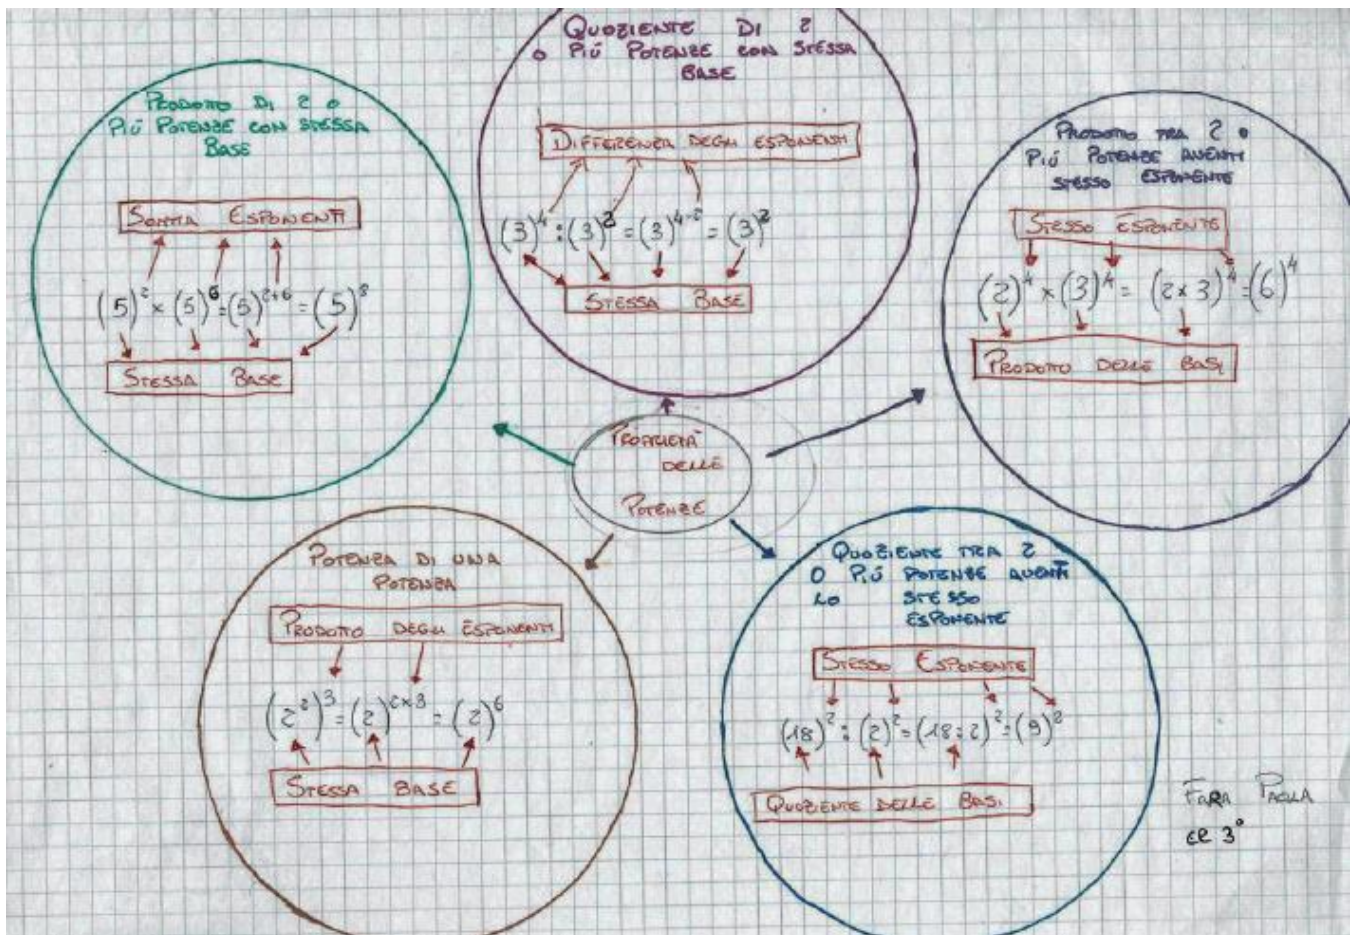 QUOZIENTE DI 2
O PIÚ POTENZE CON STESSA
BASE
DIFFERENZA DEGLI ESPONENTI
(3)⁴ : (3)² = (3)⁴⁻² = (3)²
STESSA BASE
PRODOTTO DI 2 O
PIÚ POTENZE CON STESSA
BASE
SOMMA ESPONENTI
(5)² × (5)⁶ = (5)²⁺⁶ = (5)⁸
STESSA BASE
PRODOTTO TRA 2 O
PIÚ POTENZE AVENTI
STESSO ESPONENTE
STESSO ESPONENTE
(2)⁴ × (3)⁴ = (2 × 3)⁴ = (6)⁴
PRODOTTO DELLE BASI
PROPRIETÀ
DELLE
POTENZE
POTENZA DI UNA
POTENZA
PRODOTTO DEGLI ESPONENTI
(2²)³ = (2)²ˣ³ = (2)⁶
STESSA BASE
QUOZIENTE TRA 2
O PIÚ POTENZE AVENTI
LO STESSO
ESPONENTE
STESSO ESPONENTE
(18)² : (2)² = (18:2)² = (9)²
QUOZIENTE DELLE BASI
FARA PAOLA
3°